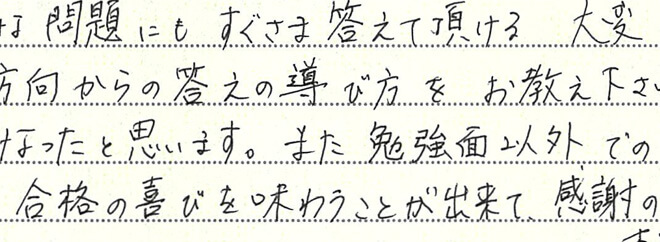 な問題にもすぐさま答えて頂ける 大変
方向からの答えの導び方を お教え下さい
なったと思います。また 勉強面以外での
合格の喜びを味わうことが出来て、感謝の